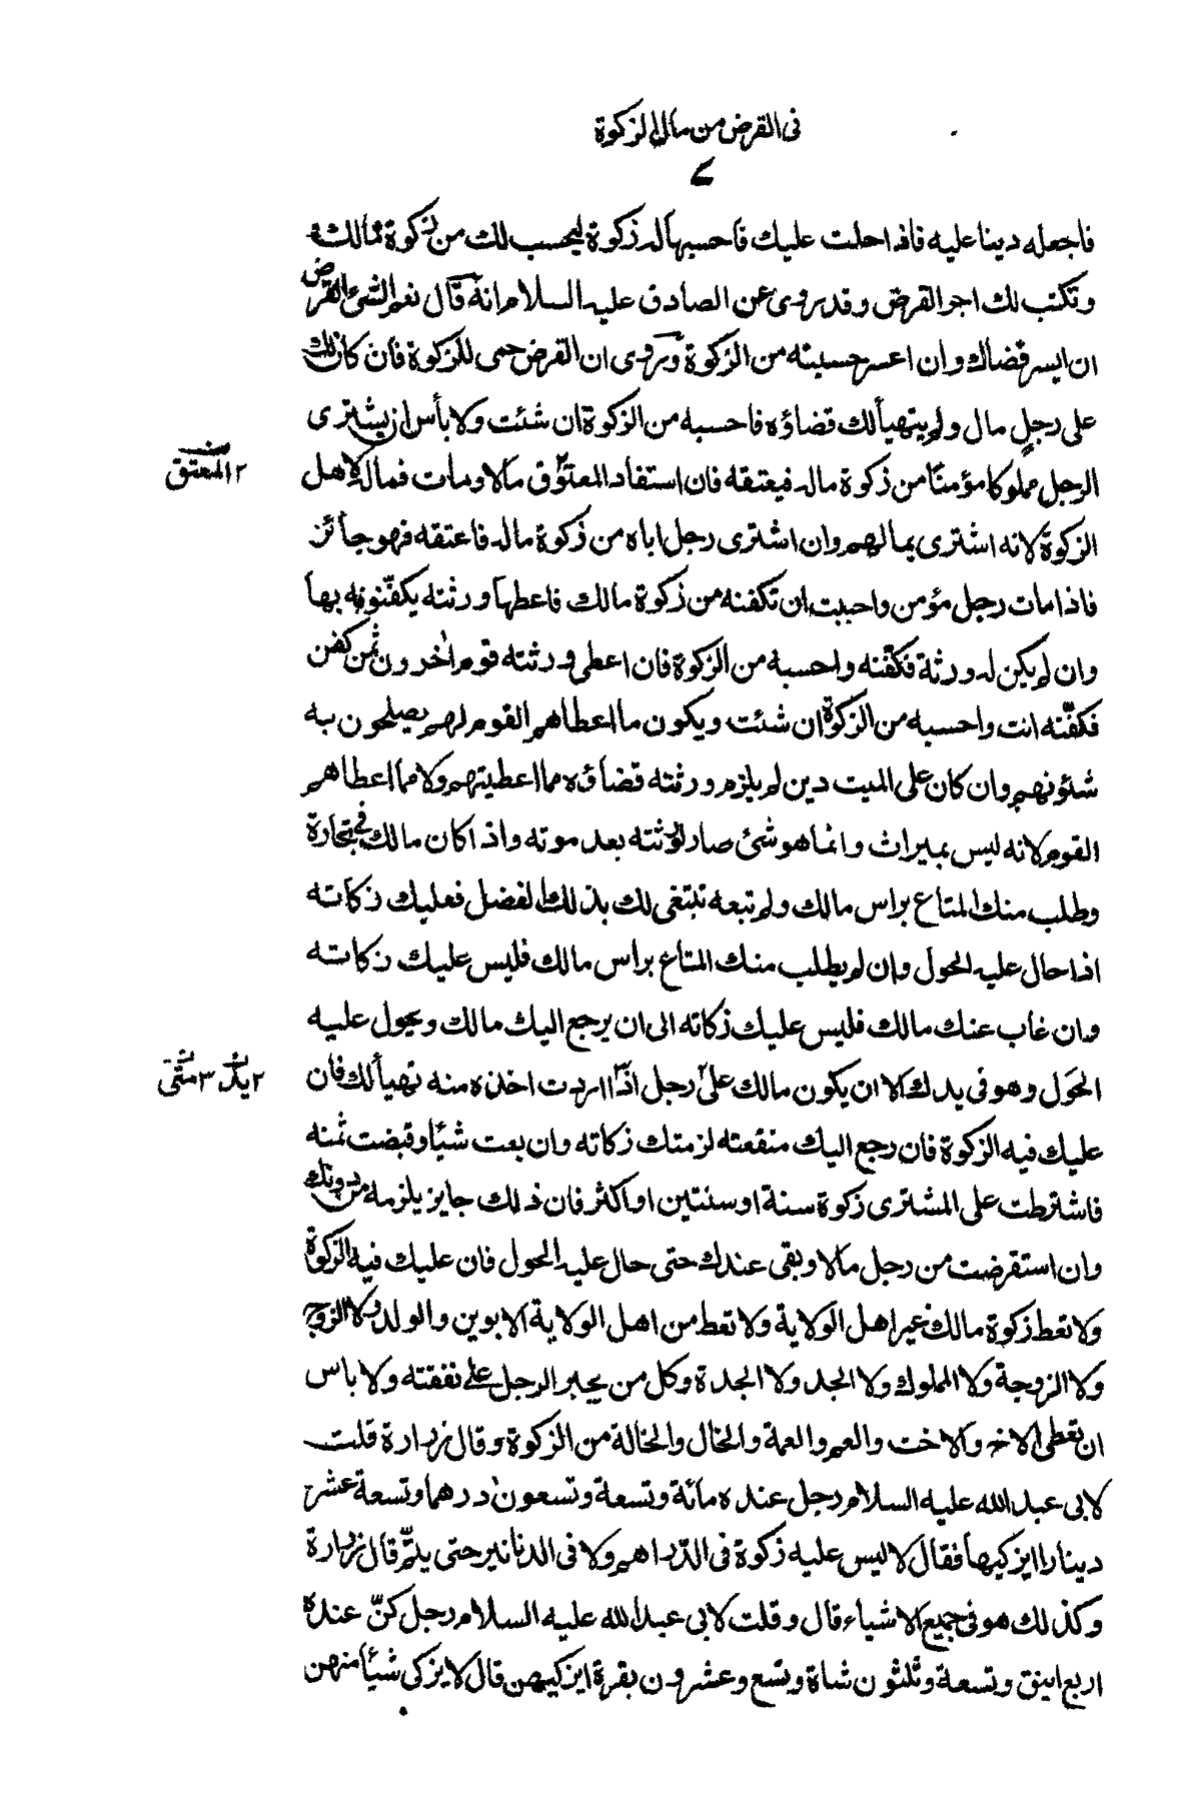 فى القرض من مال الزكوة
فاجعله دينا عليه فاذا حلت عليك فاحسبها له زكوة ليحسب لك من زكوة مالك و
وتكتب لك اجر القرض وقد روى عن الصادق عليه السلام انه قال نعم الشئ القرض
ان ايسر قضاك وان اعسر حسبته من الزكوة وروى ان القرض حمى للزكوة فان كان لك
على رجل مال ولم يتهيأ لك قضاؤه فاحسبه من الزكوة ان شئت ولا بأس ان يشترى
الرجل مملوكا مؤمنا من زكوة ماله فيعتقه فان استفاد المعتوق مالا ومات فماله لاهل
٢ المعتق
الزكوة لانه اشترى بمالهم وان اشترى رجل اباه من زكوة ماله فاعتقه فهو جائز
فاذا مات رجل مؤمن واحببت ان تكفنه من زكوة مالك فاعطها ورثته يكفنونه بها
وان لم يكن له ورثة فكفنه واحسبه من الزكوة فان اعطى ورثته قوم اخرون ثمن كفن
فكفنه انت واحسبه من الزكوة ان شئت ويكون ما اعطاهم القوم لهم يصلحون به
شئونهم وان كان على الميت دين لم يلزم ورثته قضاؤه مما اعطيتهم ولا مما اعطاهم
القوم لانه ليس بميراث وانما هو شئ صار لورثته بعد موته واذا كان مالك فى تجارة
وطلب منك المتاع براس مالك ولم تبعه تبتغى لك بذلك الفضل فعليك زكاته
اذا حال عليه الحول وان لم يطلب منك المتاع براس مالك فليس عليك زكاته
وان غاب عنك مالك فليس عليك زكاته الى ان يرجع اليك مالك ويحول عليه
الحول وهو فى يدك الا ان يكون مالك على رجل اذا اردت اخذه منه تهيأ لك فان
٢ يدك ٣ متى
عليك فيه الزكوة فان رجع اليك منفعته لزمتك زكاته وان بعت شيئا وقبضت ثمنه
فاشترطت على المشترى زكوة سنة او سنتين او اكثر فان ذلك جايز يلزمه من دونك
وان استقرضت من رجل مالا وبقى عندك حتى حال عليه الحول فان عليك فيه الزكوة
ولا تعط زكوة مالك غير اهل الولاية ولا تعط من اهل الولاية الابوين والولد ولا الزوج
ولا الزوجة ولا المملوك ولا الجد ولا الجدة وكل من يجبر الرجل على نفقته ولا باس
ان تعطى الاخ والاخت والعم والعمة والخال والخالة من الزكوة وقال زرارة قلت
لابى عبد الله عليه السلام رجل عنده مائة وتسعة وتسعون درهما وتسعة عشر
دينارا ايزكيها فقال لا ليس عليه زكوة فى الدراهم ولا فى الدنانير حتى يتم قال زرارة
وكذلك هو فى جميع الاشياء قال وقلت لابى عبد الله عليه السلام رجل كن عنده
اربع اينق وتسعة وثلثون شاة وتسع وعشرون بقرة ايزكيهن قال لا يزكى شيئا منهن